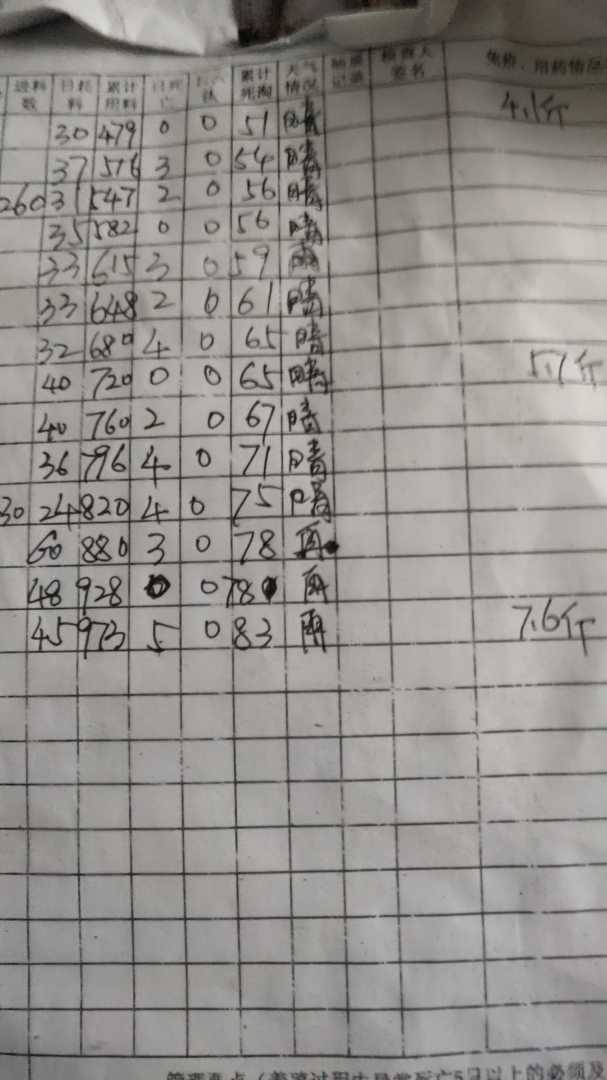 进料数 日耗料 累计用料 日死亡 日淘汰 累计死淘 天气情况 抽测记录 检查人签名 免疫、用药情况
30 479 0 0 51 晴 4.1斤
37 516 3 0 54 晴
260 31 547 2 0 56 晴
35 582 0 0 56 晴
33 615 3 0 59 雨
33 648 2 0 61 晴
32 680 4 0 65 晴 5.7斤
40 720 0 0 65 晴
40 760 2 0 67 晴
36 796 4 0 71 晴
30 24 820 4 0 75 晴
60 880 3 0 78 雨
48 928 0 0 78 雨
45 973 5 0 83 雨 7.6斤